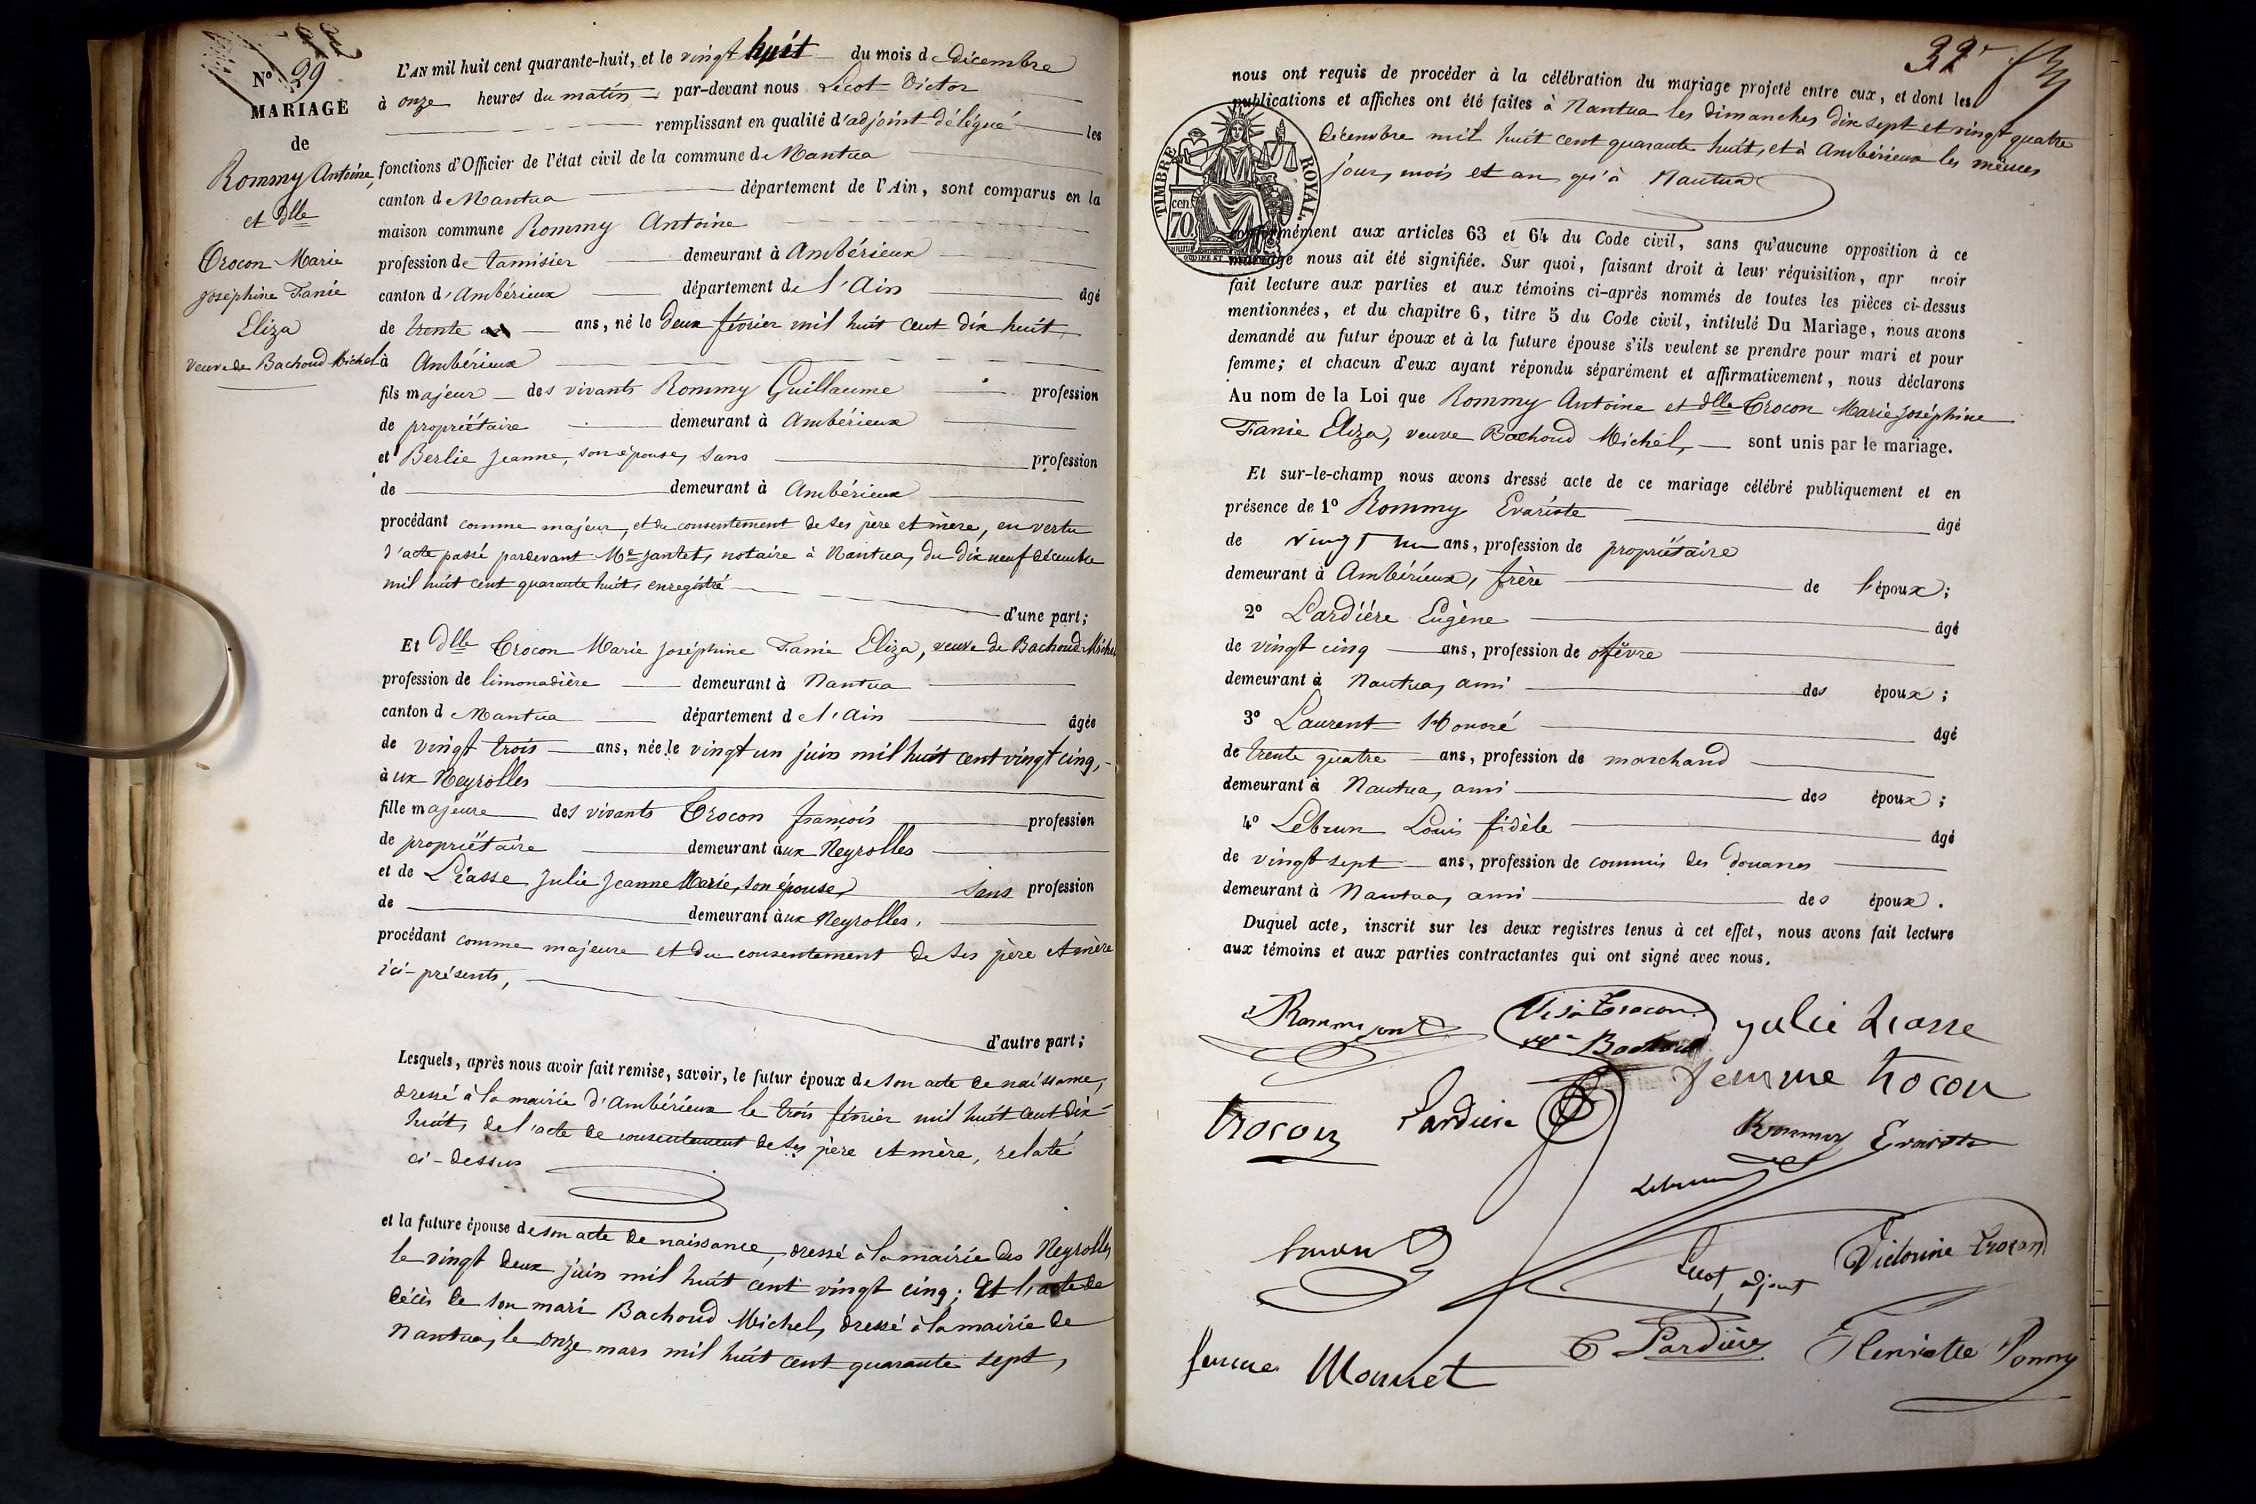 N° 39
MARIAGE
de
Rommy Antoine,
et Dlle
Crocon Marie
Joséphine Fanie
Eliza
veuve de Bachoud Michel
L'AN mil huit cent quarante-huit, et le vingt huit du mois de Décembre
à onze heures du matin par-devant nous Lecot Victor
remplissant en qualité d'adjoint délégué les
fonctions d'Officier de l'état civil de la commune de Nantua
canton de Nantua département de l'Ain, sont comparus en la
maison commune Rommy Antoine
profession de tamisier demeurant à Ambérieux
canton d'Ambérieux département de l'Ain âgé
de trente ans, né le deux février mil huit cent dix huit,
à Ambérieux
fils majeur des vivants Rommy Guillaume profession
de propriétaire demeurant à Ambérieux
et Berlie Jeanne, son épouse, sans profession
de demeurant à Ambérieux
procédant comme majeur, et du consentement de ses père et mère, en vertu
d'acte passé pardevant Me Jantet, notaire à Nantua, du dix neuf décembre
mil huit cent quarante huit, enregistré
d'une part;
Et Dlle Crocon Marie Joséphine Fanie Eliza, veuve de Bachoud Michel
profession de limonadière demeurant à Nantua
canton de Nantua département de l'Ain âgée
de vingt trois ans, née le vingt un juin mil huit cent vingt cinq,
à ux Neyrolles
fille majeure des vivants Crocon françois profession
de propriétaire demeurant àux Neyrolles
et de Liasse Julie Jeanne Marie, son épouse, sans profession
de demeurant àux Neyrolles,
procédant comme majeure et du consentement de ses père et mère
ici-présents,
d'autre part;
Lesquels, après nous avoir fait remise, savoir, le futur époux de son acte de naissance,
dressé à la mairie d'Ambérieux le trois février mil huit cent dix-
huit, de l'acte de consentement de ses père et mère, relaté
ci-dessus
et la future épouse de son acte de naissance, dressé à la mairie des Neyrolles
le vingt deux juin mil huit cent vingt cinq; Et l'acte de
décès de son mari Bachoud Michel, dressé à la mairie de
Nantua, le onze mars mil huit cent quarante sept,
32
nous ont requis de procéder à la célébration du mariage projeté entre eux, et dont les
publications et affiches ont été faites à Nantua les dimanches dix sept et vingt quatre
décembre mil huit cent quarante huit, et à Ambérieux les mêmes
jour, mois et an qu'à Nantua
TIMBRE ROYAL
70 cen.
conformément aux articles 63 et 64 du Code civil, sans qu'aucune opposition à ce
mariage nous ait été signifiée. Sur quoi, faisant droit à leur réquisition, apr avoir
fait lecture aux parties et aux témoins ci-après nommés de toutes les pièces ci-dessus
mentionnées, et du chapitre 6, titre 5 du Code civil, intitulé Du Mariage, nous avons
demandé au futur époux et à la future épouse s'ils veulent se prendre pour mari et pour
femme; et chacun d'eux ayant répondu séparément et affirmativement, nous déclarons
Au nom de la Loi que Rommy Antoine et Dlle Crocon Marie Joséphine
Fanie Eliza, veuve Bachoud Michel, sont unis par le mariage.
Et sur-le-champ nous avons dressé acte de ce mariage célébré publiquement et en
présence de 1° Rommy Evariste âgé
de vingt un ans, profession de propriétaire
demeurant à Ambérieux, frère de l'époux;
2° Lardière Eugène âgé
de vingt cinq ans, profession de ofèvre
demeurant à Nantua, ami des époux;
3° Laurent Honoré âgé
de trente quatre ans, profession de marchand
demeurant à Nantua, ami des époux;
4° Lebrun Louis fidèle âgé
de vingt sept ans, profession de commis des Douanes
demeurant à Nantua, ami des époux.
Duquel acte, inscrit sur les deux registres tenus à cet effet, nous avons fait lecture
aux témoins et aux parties contractantes qui ont signé avec nous.
Crocon
ve Bachoud
Julie Liasse
femme trocon
trocon
Lardière
Rommy Evariste
Lebrun
Laurent
Lecot, adjoint
Victorine trocon
femme Monnet
C Lardière
Henriette Pommy